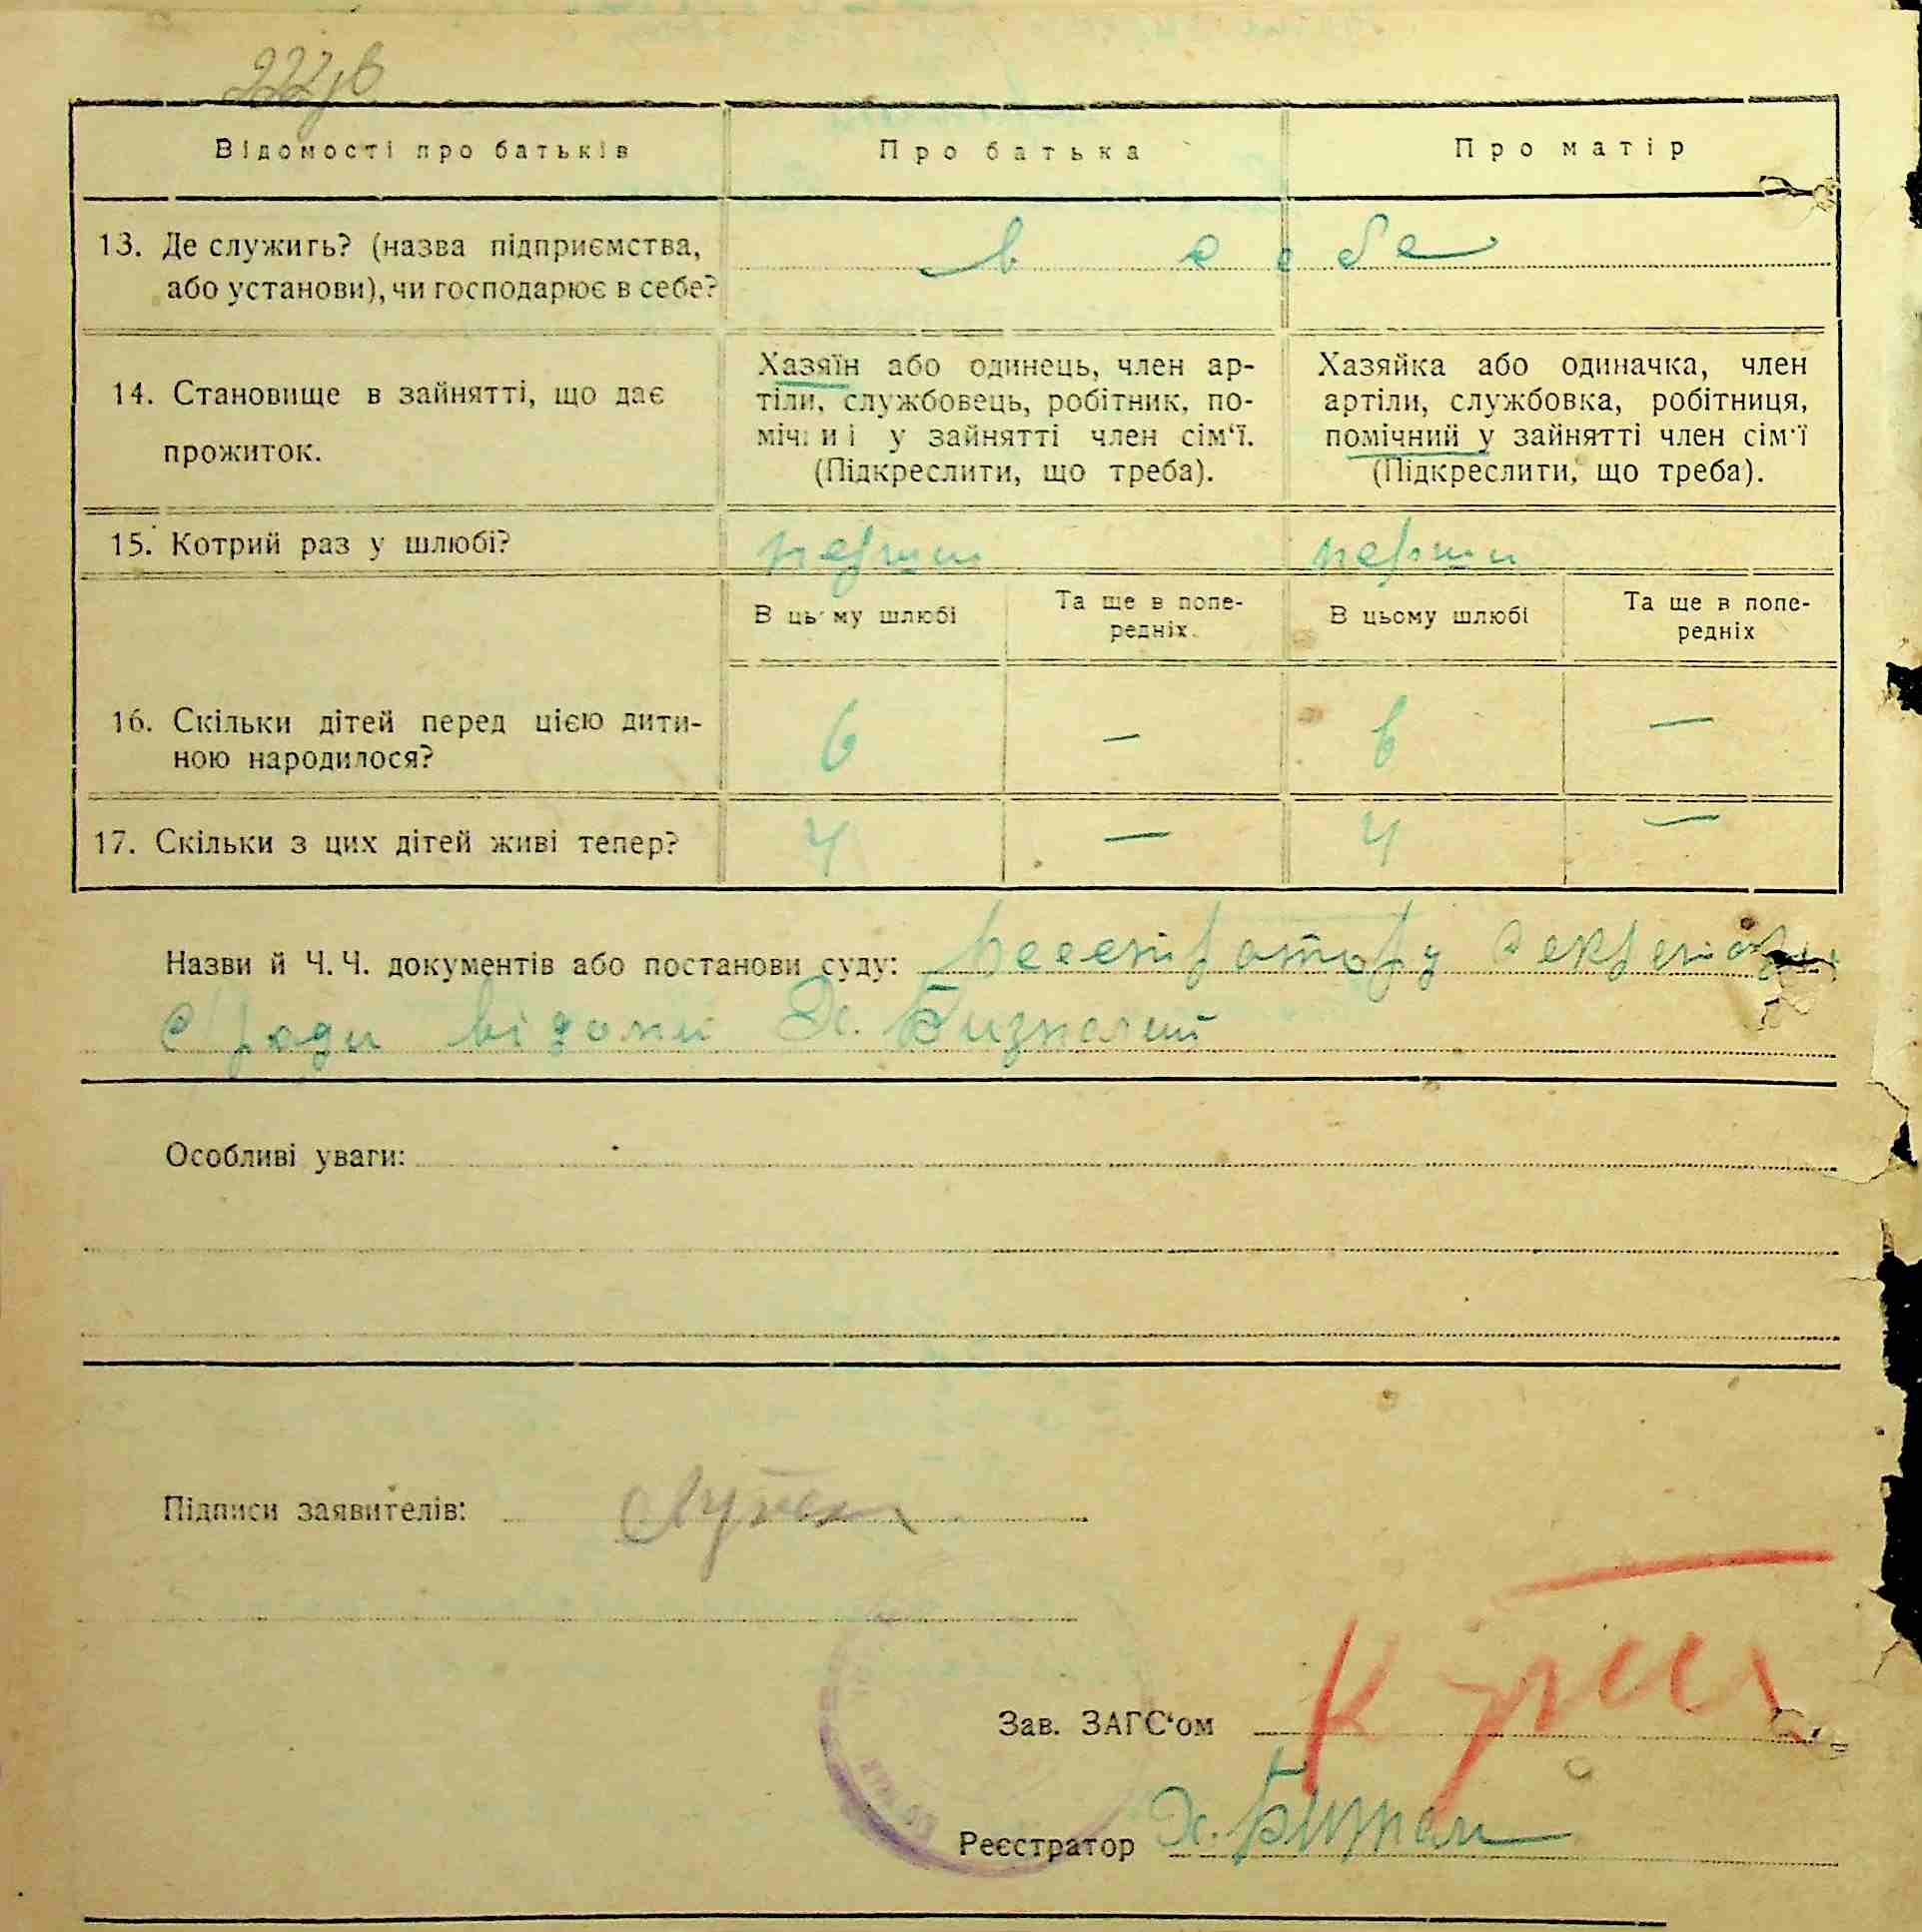 222зв
Відомості про батьків
Про батька
Про матір
13. Де служить? (назва підприємства,
або установи), чи господарює в себе?
в себе
14. Становище в зайнятті, що дає
прожиток.
Хазяїн або одинець, член ар-
тіли, службовець, робітник, по-
між у зайнятті член сім‘ї.
(Підкреслити, що треба).
Хазяйка або одиначка, член
артіли, службовка, робітниця,
помічний у зайнятті член сім‘ї
(Підкреслити, що треба).
15. Котрий раз у шлюбі?
перши
перши
В цьому шлюбі
Та ще в попе-
редніх.
В цьому шлюбі
Та ще в попе-
редніх
16. Скільки дітей перед цією дити-
ною народилося?
6 — 6 —
17. Скільки з цих дітей живі тепер?
4 — 4 —
Назви й Ч. Ч. документів або постанови суду: реєстратору секретар
с/ради відомий Х.
Особливі уваги:
Підписи заявителів:
Зав. ЗАГС‘ом
Реєстратор Х.